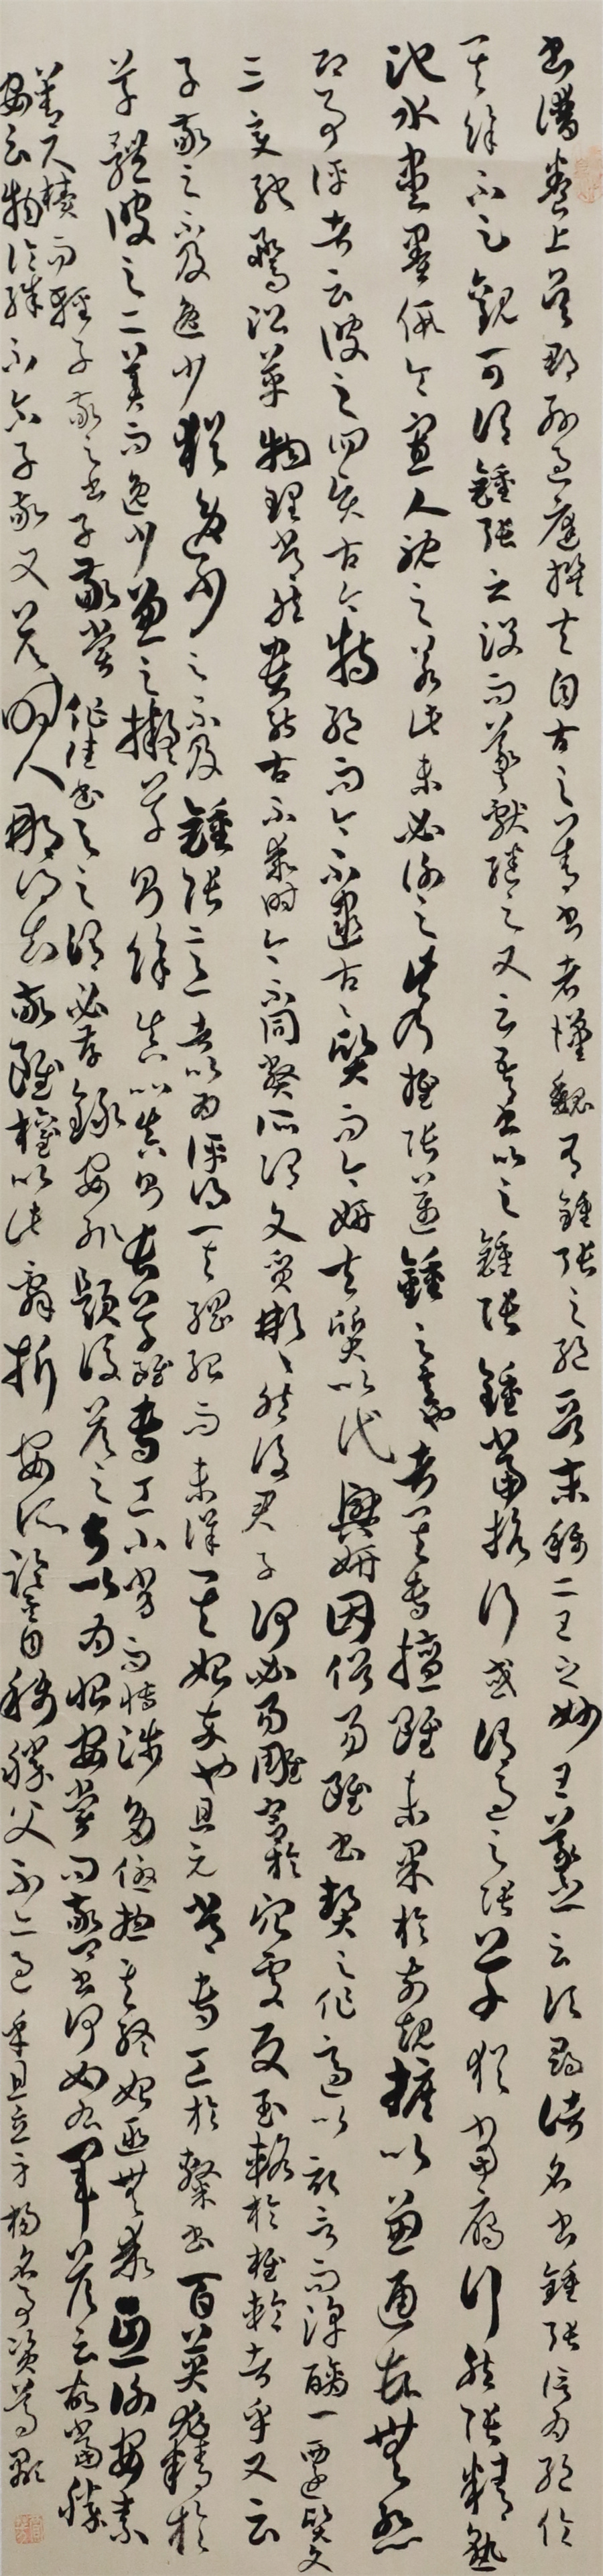 書譜卷上吳郡孫過庭撰夫自古之善書者漢魏有鍾張之絕晉末稱二王之妙王羲之云頃尋諸名書鍾張信為絕倫
其餘不足觀可謂鍾張云沒而羲獻繼之又云吾書比之鍾張鍾當抗行或謂過之張草猶當雁行然張精熟
池水盡墨假令寡人耽之若此未必謝之此乃推張邁鍾之意也考其專擅雖未果於前規摭以兼通故無慙
即事評者云彼之四賢古今特絕而今不逮古古質而今妍夫質以代興妍因俗易雖書契之作適以記言而淳醨一遷質文
三變馳騖沿革物理常然貴能古不乖時今不同弊所謂文質彬彬然後君子何必易雕宮於穴處反玉輅於椎輪者乎又云
子敬之不及逸少猶逸少之不及鍾張意者以為評得其綱紀而未詳其始卒也且元常專工於隸書百英尤精於
草體彼之二美而逸少兼之擬草則餘真比真則長草雖專工小劣而博涉多優揔其終始匪無乖互謝安素
善尺牘而輕子敬之書子敬嘗作佳書與之謂必存錄安輒題後答之甚以為恨安嘗問敬卿書何如右軍答云故當勝
安云物論殊不爾子敬又答時人那得知敬雖權以此辭折安所鑒自稱勝父不亦過乎且立身揚名事資尊顯